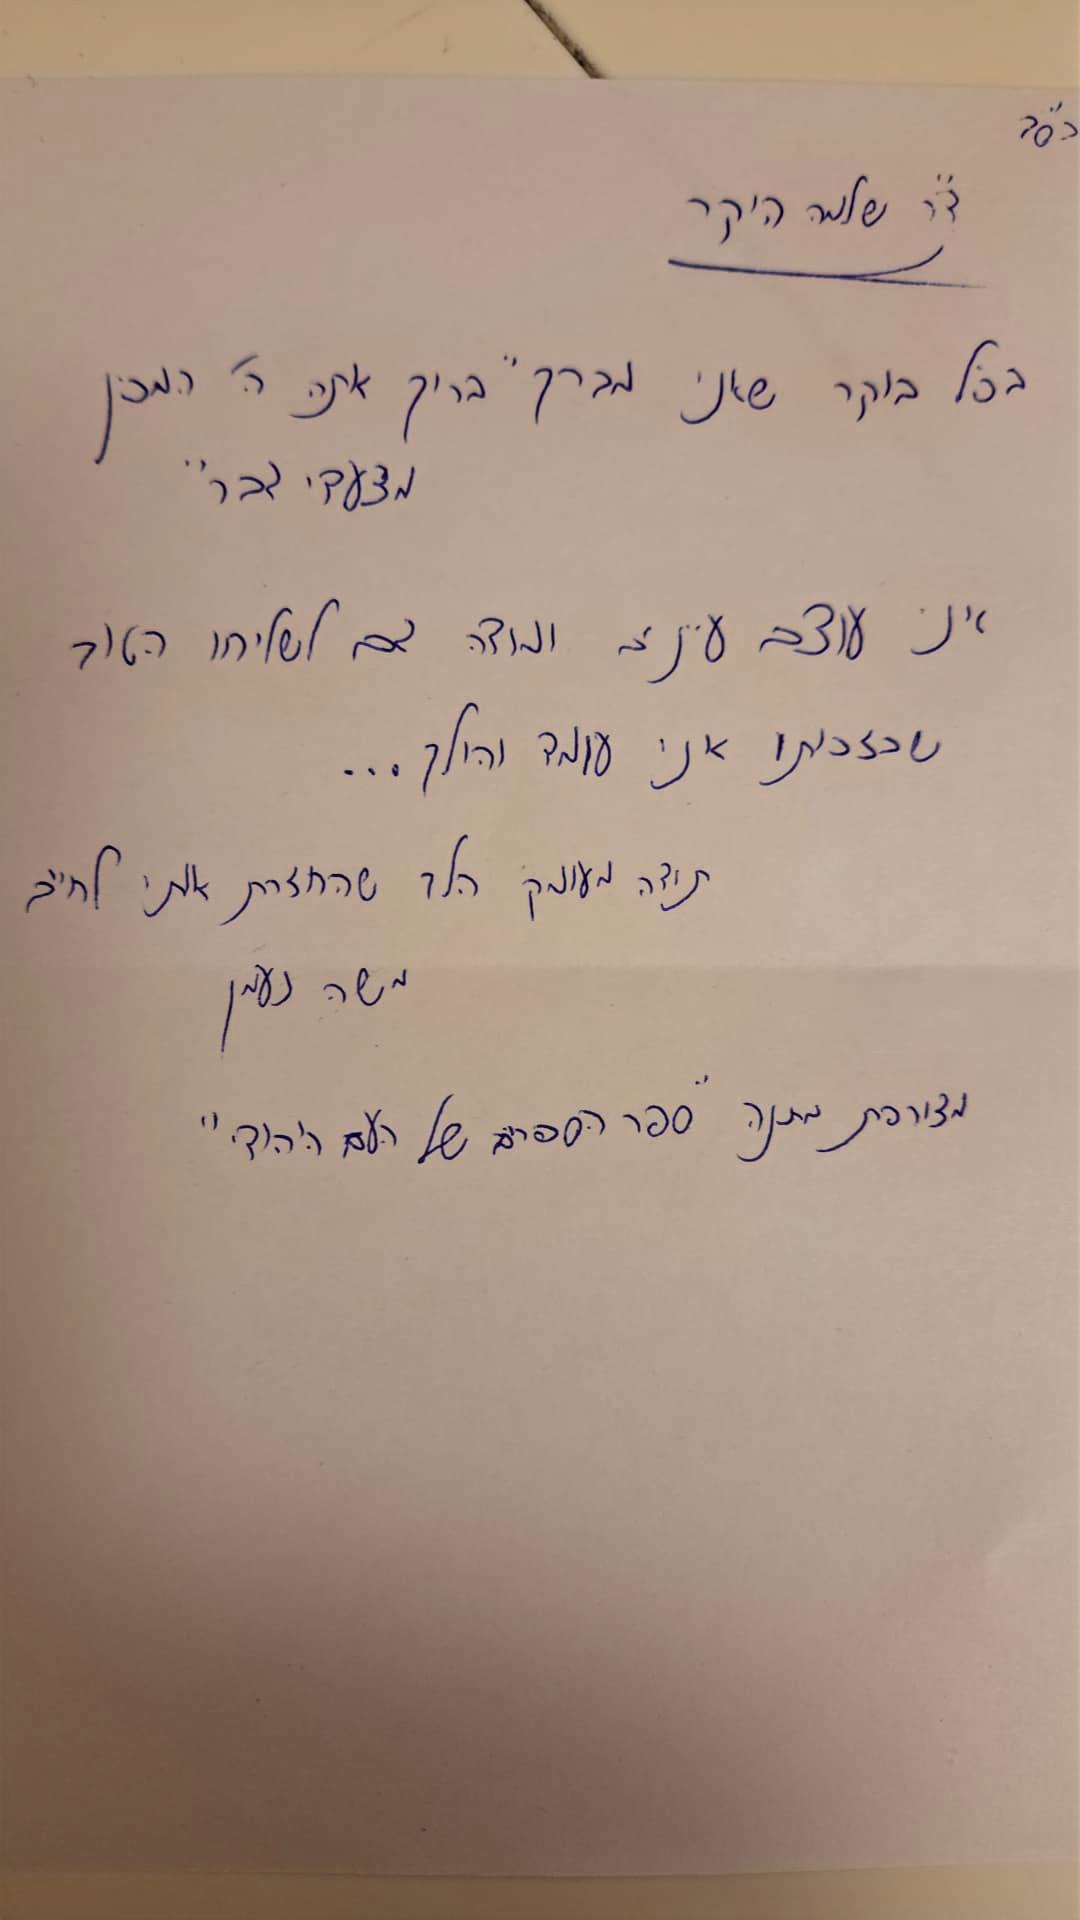 בס"ד
ד"ר שלמה היקר
בכל בוקר שאני מברך "בריך אתה ה' המכין
מצעדי גבר"
איני עוצם עיניים ומודה גם לשליחו הטוב
שבזכותו אני עומד והולך...
תודה מעומק הלב שהחזרת אותי לחיים
משה נעמן
מצורפת מתנה "ספר הספרים של העם היהודי"